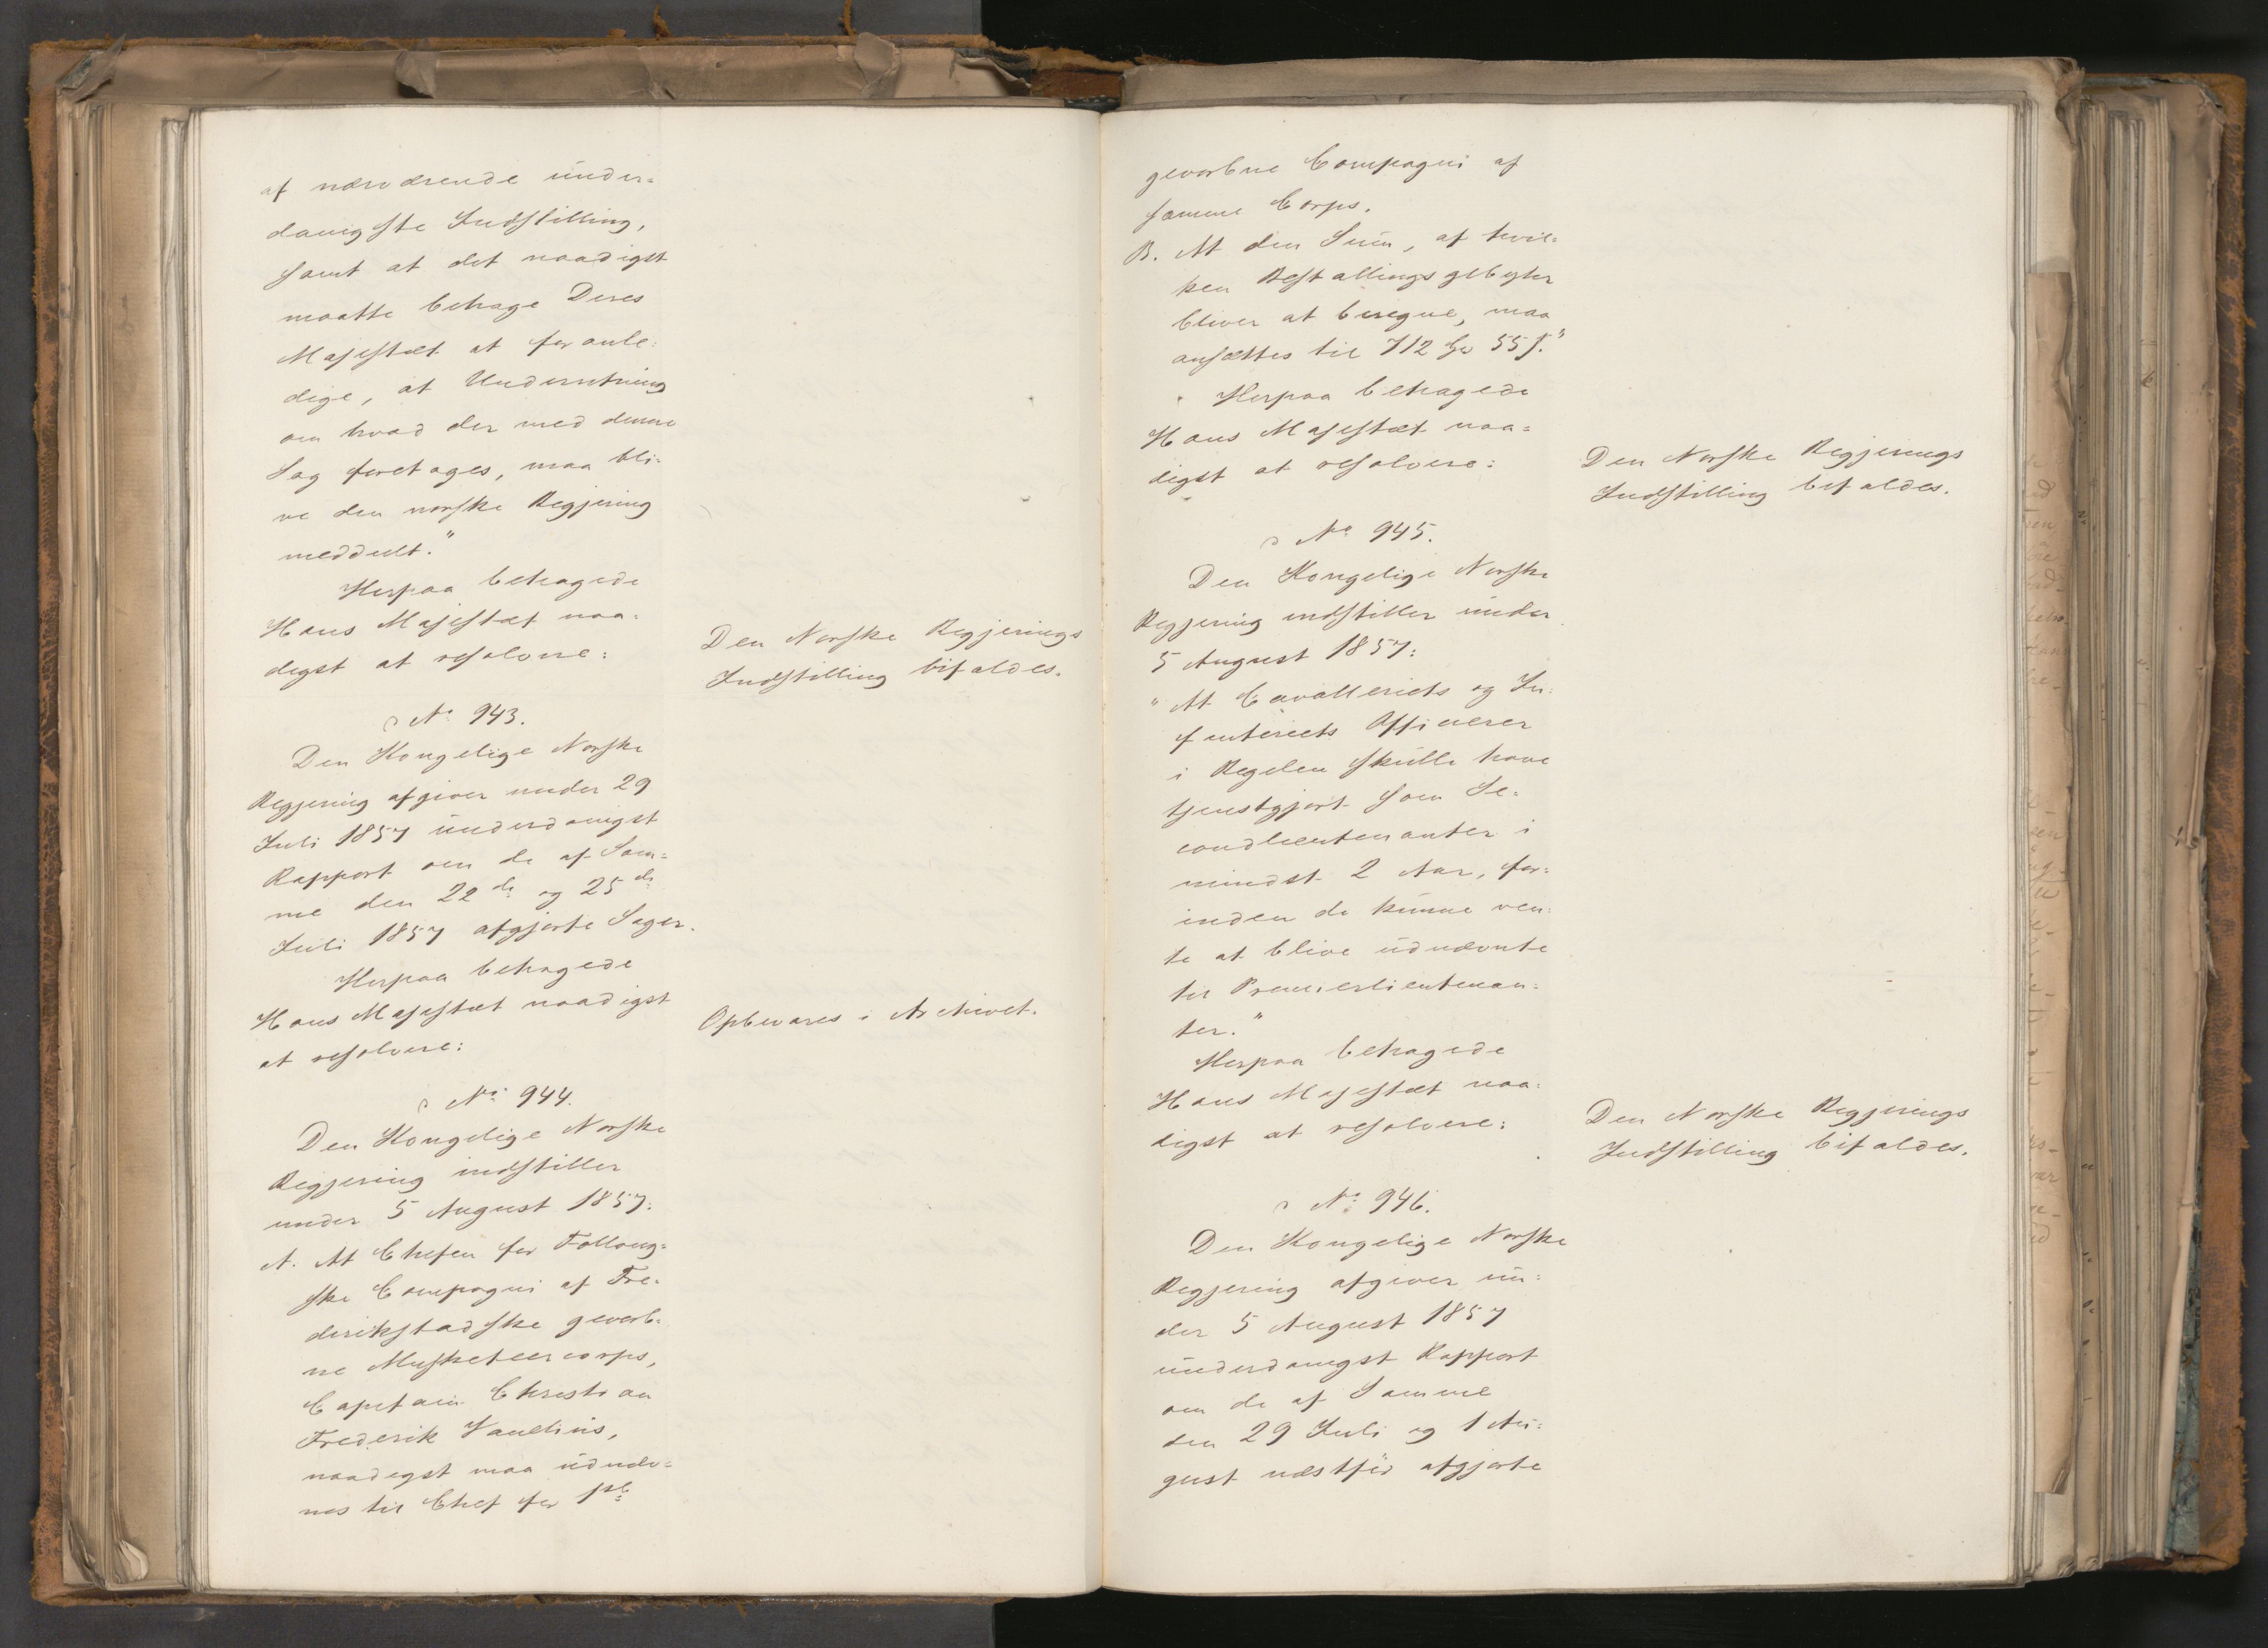 af nærværende under=
danigste Indstilling,
samt at det naadigst
maatte behage Deres
Majestæt at foranle=
dige, at Underretning
om hvad der med denne
Sag foretages, maa bli=
ve den norske Regjering
meddeelt."
Herpaa behagede
Hans Majestæt naa=
digst at resolvere:
Den Norske Regjerings
Indstilling bifaldes.
No 943.
Den Kongelige Norske
Regjering afgiver under 29
Juli 1857 underdanigst
Rapport om de af Sam=
me den 22de og 25de
Juli 1857 afgjorte Sager.
Herpaa behagede
Hans Majestæt naadigst
at resolvere:
Opbevares i Archivet.
No 944.
Den Kongelige Norske
Regjering indstiller
under 5 August 1857:
A. At Chefen for Folloug=
ske Compagni af Fre=
derikstadske gevorb=
ne Musketeercorps,
Capitain Christian
Frederik
naadigst maa udnæv=
nes til Chef for 1ste
gevorbne Compagni af
samme Corps.
B. At den Sum, af hvil=
ken Bestallingsgebyhr
bliver at beregne, maa
ansættes til 712 55 ß."
Herpaa behagede
Hans Majestæt naa=
digst at resolvere:
Den Norske Regjerings
Indstilling bifaldes.
No 945.
Den Kongelige Norske
Regjering indstiller under
5 August 1857:
"At Cavalleriets og In=
fanteriets Officerer
i Regelen skulle have
tjenstgjort som Se=
condlieutenanter i
mindst 2 Aar, for=
inden de kunne ven=
te at blive udnævnte
til Premierlieutenan=
ter."
Herpaa behagede
Hans Majestæt naa=
digst at resolvere:
Den Norske Regjerings
Indstilling bifaldes.
No 946.
Den Kongelige Norske
Regjering afgiver un=
der 5 August 1857
underdanigst Rapport
om de af Samme
den 29 Juli og 1 Au=
gust næstfør afgjorte